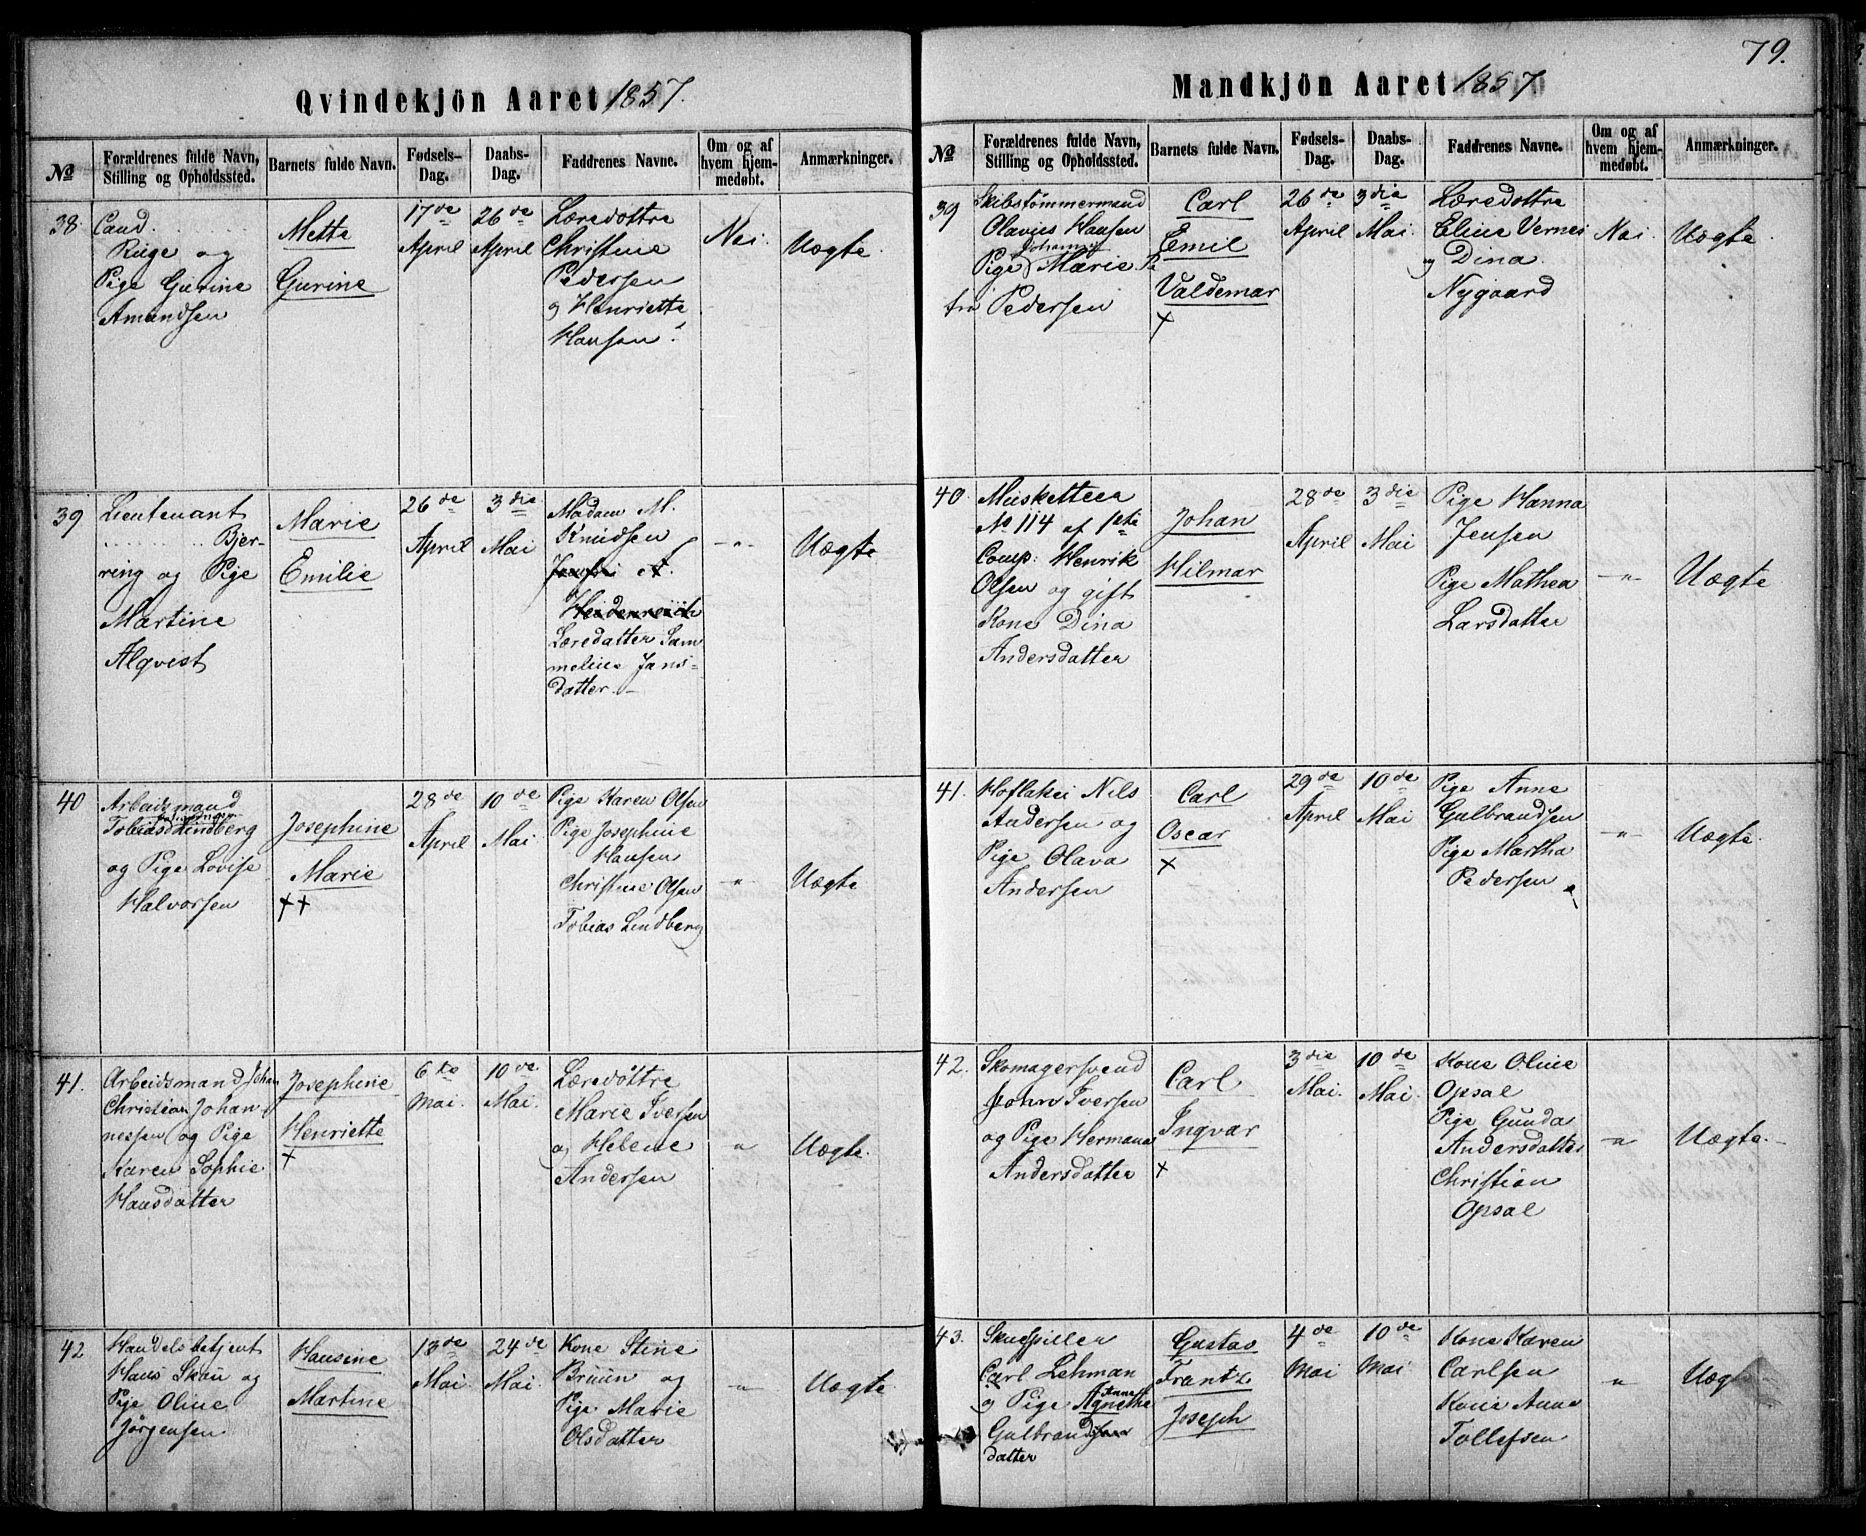 Qvindekjön Aaret 1857.
No
Forældrenes fulde Navn, Stilling og Opholdssted.
Barnets fulde Navn.
Fødsels-Dag.
Daabs-Dag.
Faddrenes Navne.
Om og af hvem hjem-medøbt.
Anmærkninger.
38.
Cand. . . . . . .
Ruge og
Pige Gurine
Amundsen
Mette
Gurine
17de
April
26de
April
Læredøttre
Christine
Pedersen
og Henriette
Hansen.
Nei.
Uægte.
39
Lieutenant
. . . . . . . Bjer-
ring og Pige
Martine
Alqvist
Marie
Emilie
26de
April
3die
Mai
Madam M.
Knudsen
A.
Heidenreich
Læredatter Lam
meline Jans-
datter.
— " —
Uægte
40
Arbeidsmand
Tobias Lindberg
og Pige Lovise
Halvorsen
Josephine
Marie
++
28de
April
10de
Mai.
Pige Karen Olsen
Pige Josephine
Hansen
Christine Olsen
Tobias Lindberg
— " —
Uægte
41.
Arbeidsmand Johan
Christian Johan-
nessen og Pige
Karen Sophie
Hansdatter
Josephine
Henriette
+
6te
Mai.
10de
Mai.
Læredøttre
Marie Iversen
og Helene
Andersen
"
Uægte.
42
Handelsbetjent
Hans Skau og
Pige Oline
Jørgensen
Hansine
Martine
13de
Mai.
24de
Mai.
Kone Stine
Bruun og
Pige Marie
Olsdatter
"
Uægte.
79.
Mandkjön Aaret 1857.
No
Forældrenes fulde Navn, Stilling og Opholdssted.
Barnets fulde Navn.
Fødsels-Dag.
Daabs-Dag.
Faddrenes Navne.
Om og af hvem hjem-medøbt.
Anmærkninger.
39
Skibstømmermand
Olavus Hansen
Johanne
Pige Marie Pe
tra Pedersen
Carl
Emil
Valdemar
+
26de
April
3die
Mai.
Læredøttre
Eline Vernes
og Dina
Nygaard
Nei.
Uægte.
40.
Musketteer
No 114 af 1ste
Comp: Henrik
Olsen og gift
Kone Dina
Andersdatter
Johan
Hilmar
28de
April
3die
Mai
Pige Hanna
Jensen
Pige Mathea
Larsdatter
— " —
Uægte
41.
Hoflakei Nils
Andersen og
Pige Olava
Andersen
Carl
Oscar
+
29de
April
10de
Mai
Pige Anne
Gulbrandsen
Pige Martha
Pedersen
— " —
Uægte.
42.
Skomagersvend
John Iversen
og Pige Hermana
Andersdatter
Carl
Ingvar
+
3die
Mai.
10de
Mai.
Kone Oline
Opsal
Pige Gunda
Andersdatter
Christian
Opsal
— " —
Uægte.
43.
Skuespiller
Carl Lehman
og Pige Anne Agnethe
Gulbrandsen
datter
Gustav
Frantz
Joseph
4de
Mai
10de
Mai
Kone Karen
Carlsen
Kone Anne
Tollefsen
"
Uægte